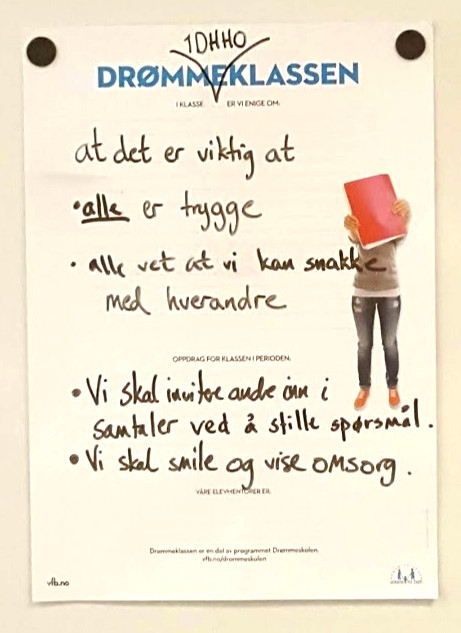 1DHHO
DRØMMEKLASSEN
I KLASSE ER VI ENIGE OM:
at det er viktig at
• alle er trygge
• alle vet at vi kan snakke
med hverandre
OPPDRAG FOR KLASSEN I PERIODEN:
• Vi skal invitere andre inn i
samtaler ved å stille spørsmål.
• Vi skal smile og vise omsorg.
VÅRE ELEVMENTORER ER:
Drømmeklassen er en del av programmet Drømmeskolen.
vfb.no/drommeskolen
vfb.no